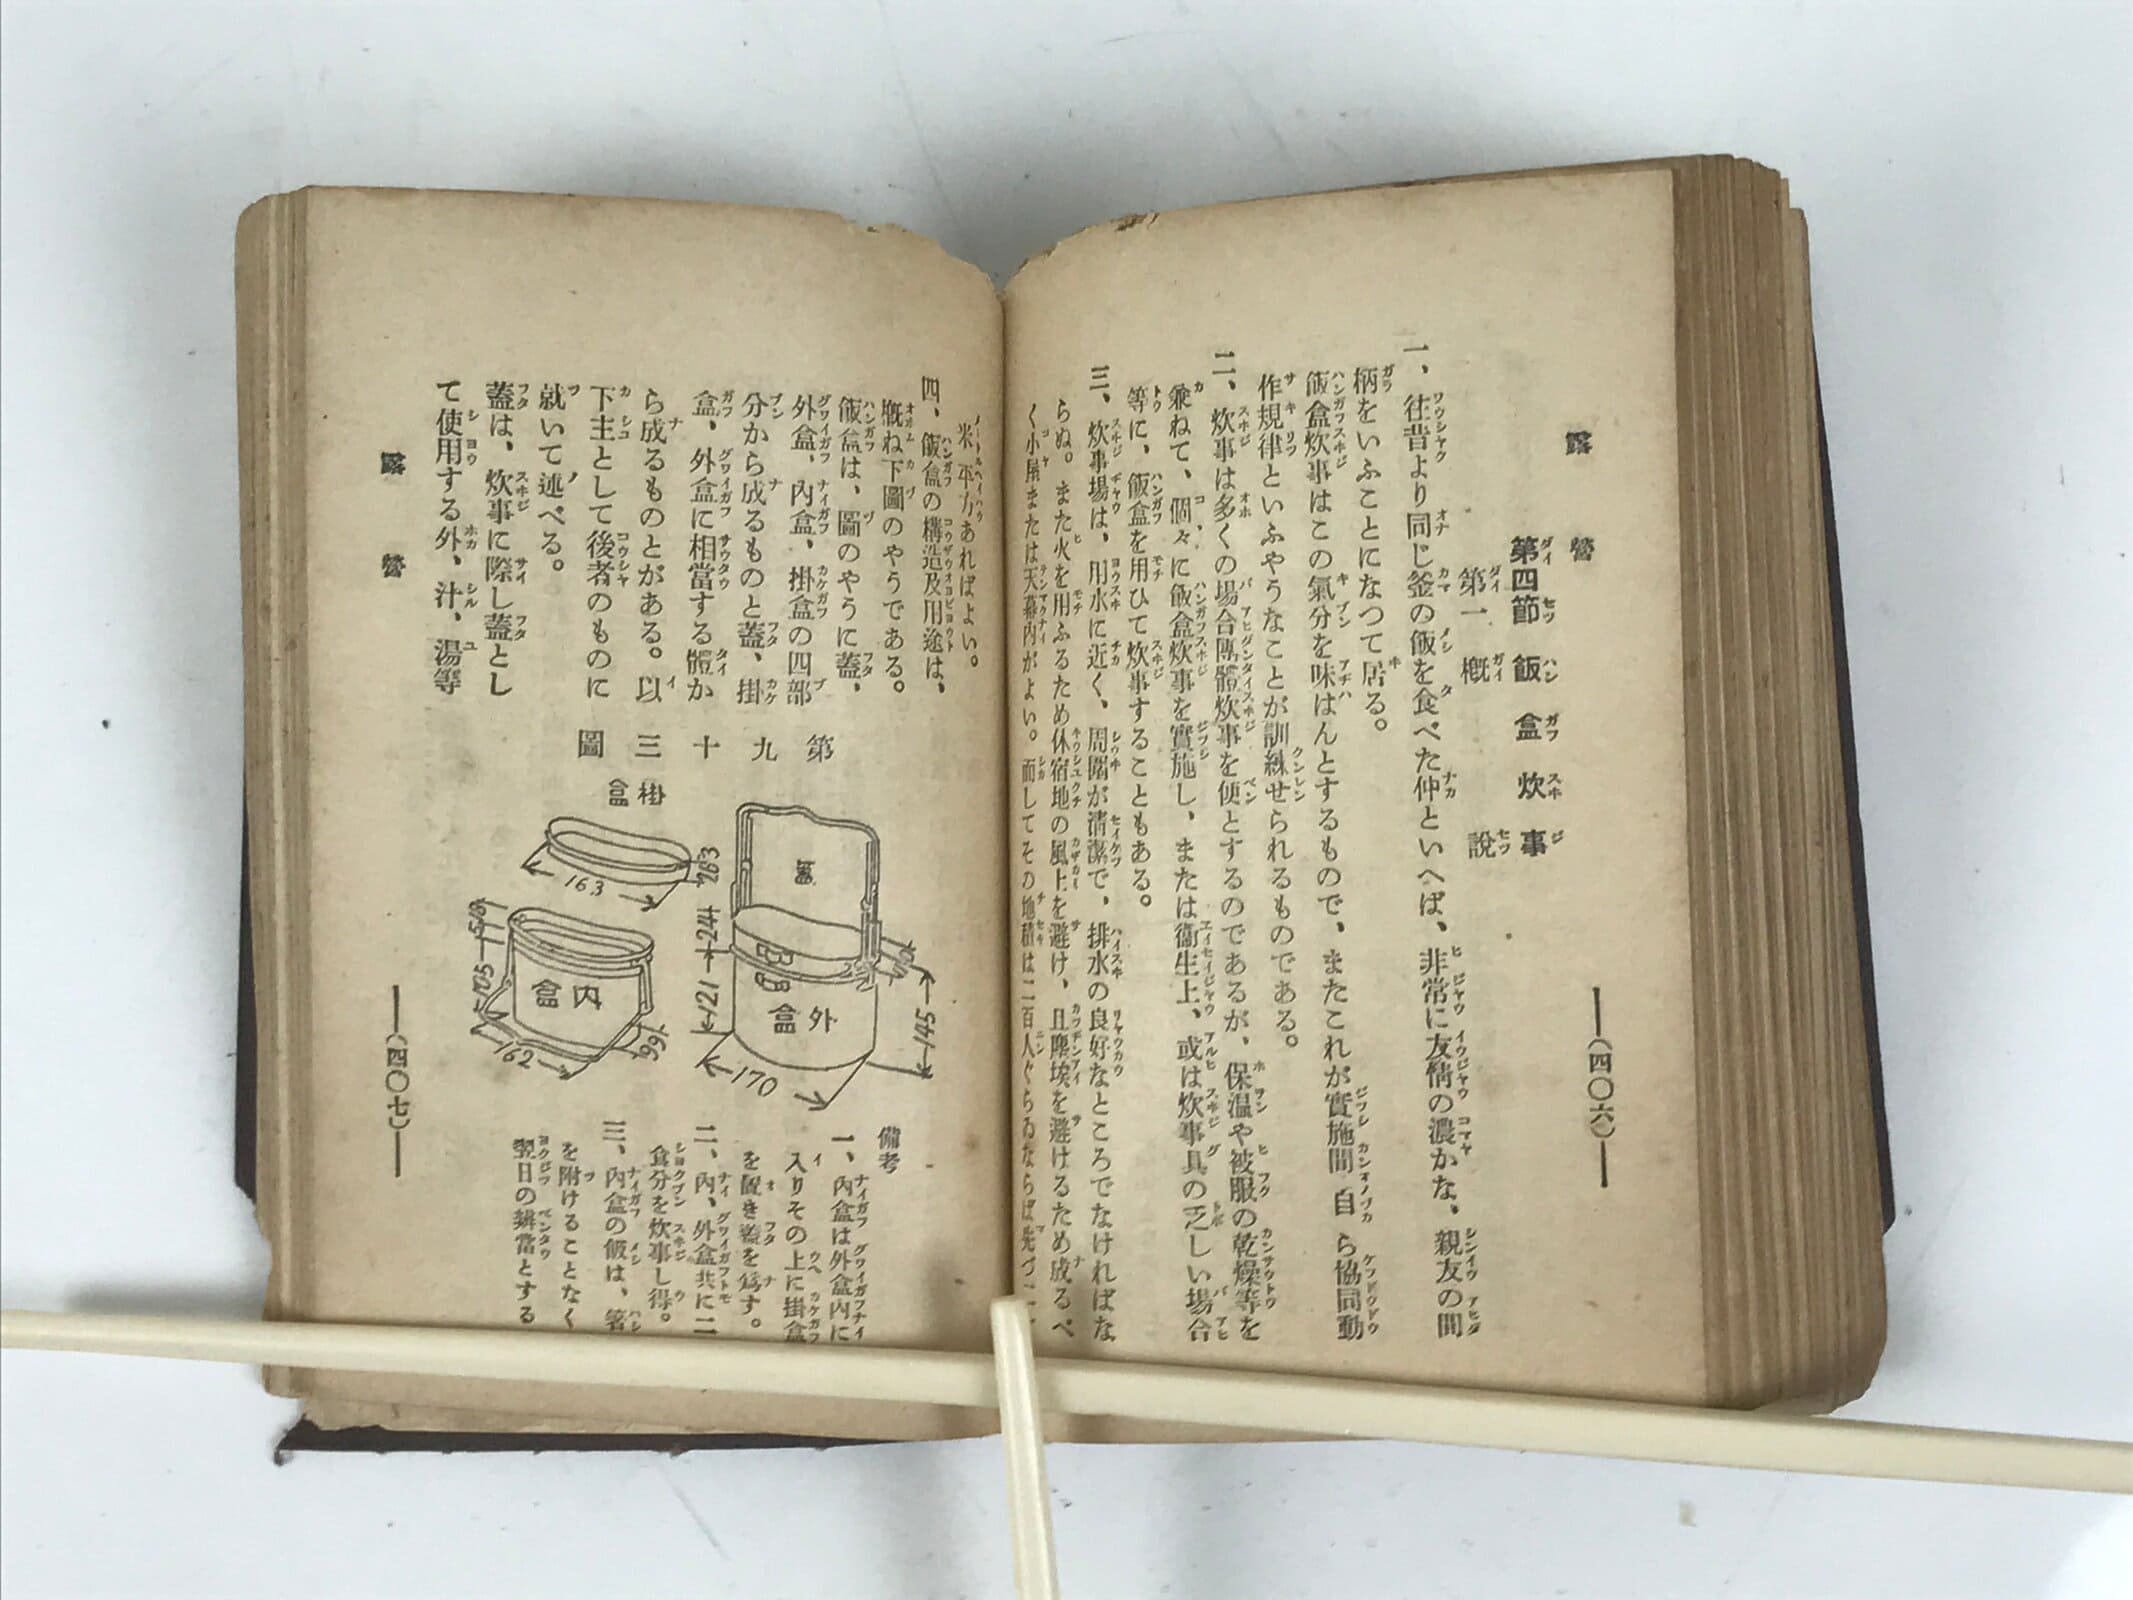 露營
―(四〇六)―
第四節 飯盒炊事
第一 概說
一、往昔より同じ釜の飯を食べた仲といへば、非常に友情の濃かな、親友の間
柄をいふことになつて居る。
飯盒炊事はこの氣分を味はんとするもので、またこれが實施間自ら協同動
作規律といふやうなことが訓練せられるものである。
二、炊事は多くの場合團體炊事を便とするのであるが、保温や被服の乾燥等を
兼ねて、個々に飯盒炊事を實施し、または衞生上、或は炊事具の乏しい場合
等に、飯盒を用ひて炊事することもある。
三、炊事場は、用水に近く、周圍が清潔で、排水の良好なところでなければな
らぬ。また火を用ふるため休宿地の風上を避け、且塵埃を避けるため成るべ
く小屋または天幕内がよい。而してその地積は二百人ぐらゐならば先づ二十
米平方あればよい。
四、飯盒の構造及用途は、
概ね下圖のやうである。
飯盒は、圖のやうに蓋、
外盒、内盒、掛盒の四部
分から成るものと蓋、掛
盒、外盒に相當する體か
ら成るものとがある。以
下主として後者のものに
就いて述べる。
蓋は、炊事に際し蓋とし
て使用する外、汁、湯等
第九十三圖
掛盒
163
263
蓋
244
121
外盒
145
170
内盒
105
162
備考
一、内盒は外盒内に
入りその上に掛盒
を置き蓋を爲す。
二、内、外盒共に二
食分を炊事し得。
三、内盒の飯は、箸
を附けることなく
翌日の辨當とする
露營
―(四〇七)―